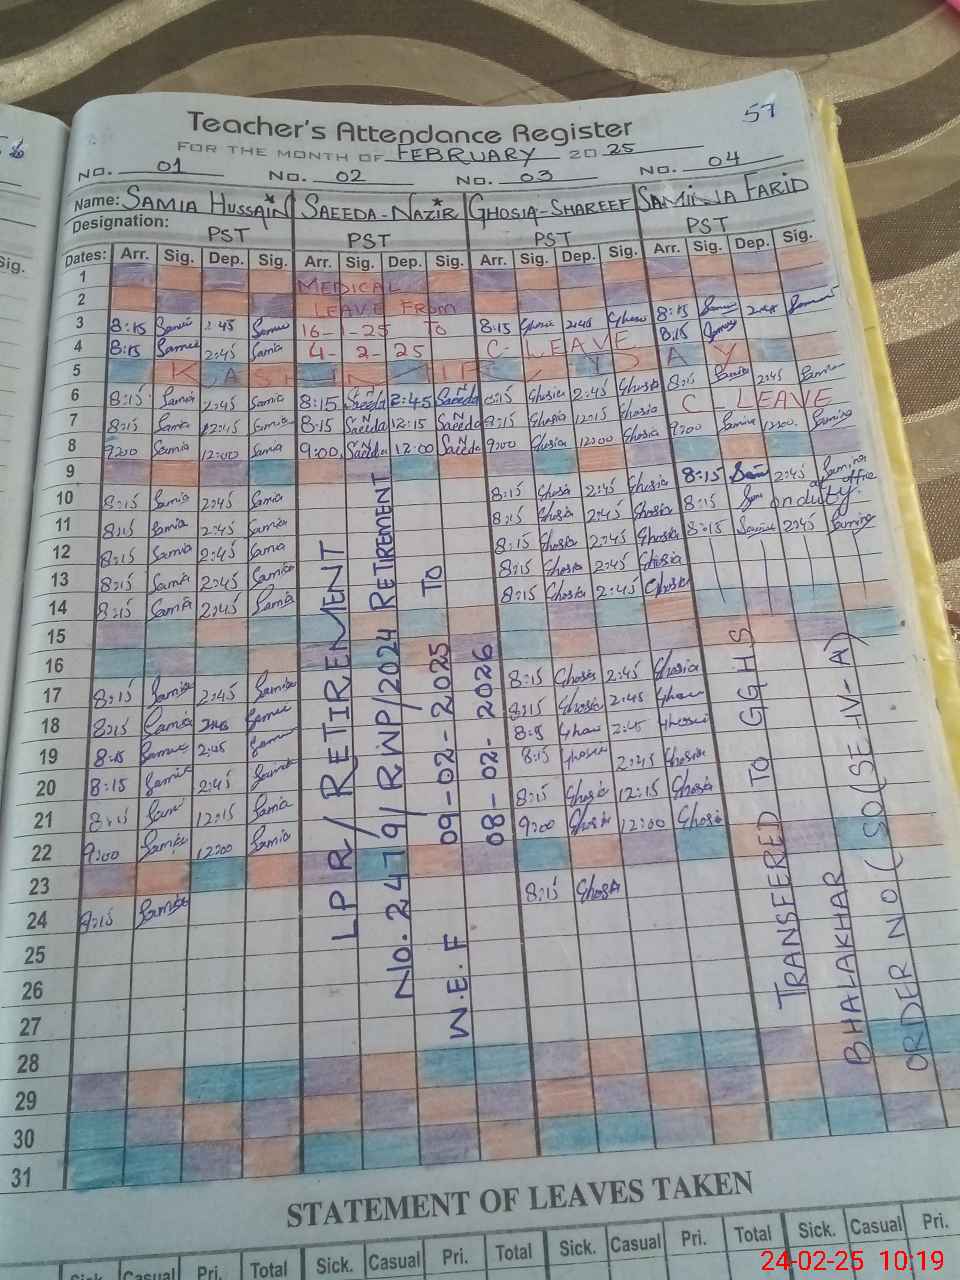 57
Teacher's Attendance Register
FOR THE MONTH OF FEBRUARY 2025
NO. 01 NO. 02 NO. 03 NO. 04
Name: SAMIA HUSSAIN SAEEDA-NAZIR GHOSIA-SHAREEF SAMINA FARID
Designation: PST PST PST PST
Sig. Dates: Arr. Sig. Dep. Sig. Arr. Sig. Dep. Sig. Arr. Sig. Dep. Sig. Arr. Sig. Dep. Sig.
1 MEDICAL
2 LEAVE From
3 8:15 2:45 16-1-25 To 8:15 2:45 8:15 2:45
4 8:15 2:45 4-2-25 C-LEAVE 8:15
5 KASHMIR DAY
6 8:15 Samia 2:45 Samia 8:15 Saeeda N 2:45 Saeeda N 8:15 Ghosia 2:45 Ghosia 8:15 Samina 2:45 Samina
7 8:15 Samia 12:45 Samia 8:15 Saeeda N 12:15 Saeeda N 8:15 Ghosia 12:15 Ghosia C-LEAVE
8 9:00 Samia 12:00 Samia 9:00 Saeeda N 12:00 Saeeda N 9:00 Ghosia 12:00 Ghosia 9:00 Samina 12:00 Samina
9
10 8:15 Samia 2:45 Samia 8:15 Ghosia 2:45 Ghosia 8:15 2:45 Samina
11 8:15 Samia 2:45 Samia 8:15 Ghosia 2:45 Ghosia 8:15 on duty office
12 8:15 Samia 2:45 Samia 8:15 Ghosia 2:45 Ghosia 8:15 2:45 Samina
13 8:15 Samia 2:45 Samia 8:15 Ghosia 2:45 Ghosia
14 8:15 Samia 2:45 Samia 8:15 Ghosia 2:45 Ghosia
15
16
17 8:15 Samia 2:45 Samia 8:15 Ghosia 2:45 Ghosia
18 8:15 Samia 2:45 8:15 Ghosia 2:45
19 8:15 2:45 2:45
20 8:15 Samia 2:45 Samia 8:15 Ghosia 2:45 Ghosia
21 8:15 12:15 Samia 8:15 Ghosia 12:15 Ghosia
22 9:00 Samia 12:00 Samia 9:00 Ghosia 12:00 Ghosia
23
24 8:15 Samia 8:15 Ghosia
25
26
27
28
29
30
31
LPR/RETIREMENT
NO. 2479/RWP/2024 RETIREMENT
W.E.F 09-02-2025 TO
08-02-2026
TRANSFERED TO GGHS
BHALAKHAR
ORDER NO (SO(SE-IV-A)
STATEMENT OF LEAVES TAKEN
Sick. Casual Pri. Total Sick. Casual Pri. Total Sick. Casual Pri. Total Sick. Casual Pri.
24-02-25 10:19